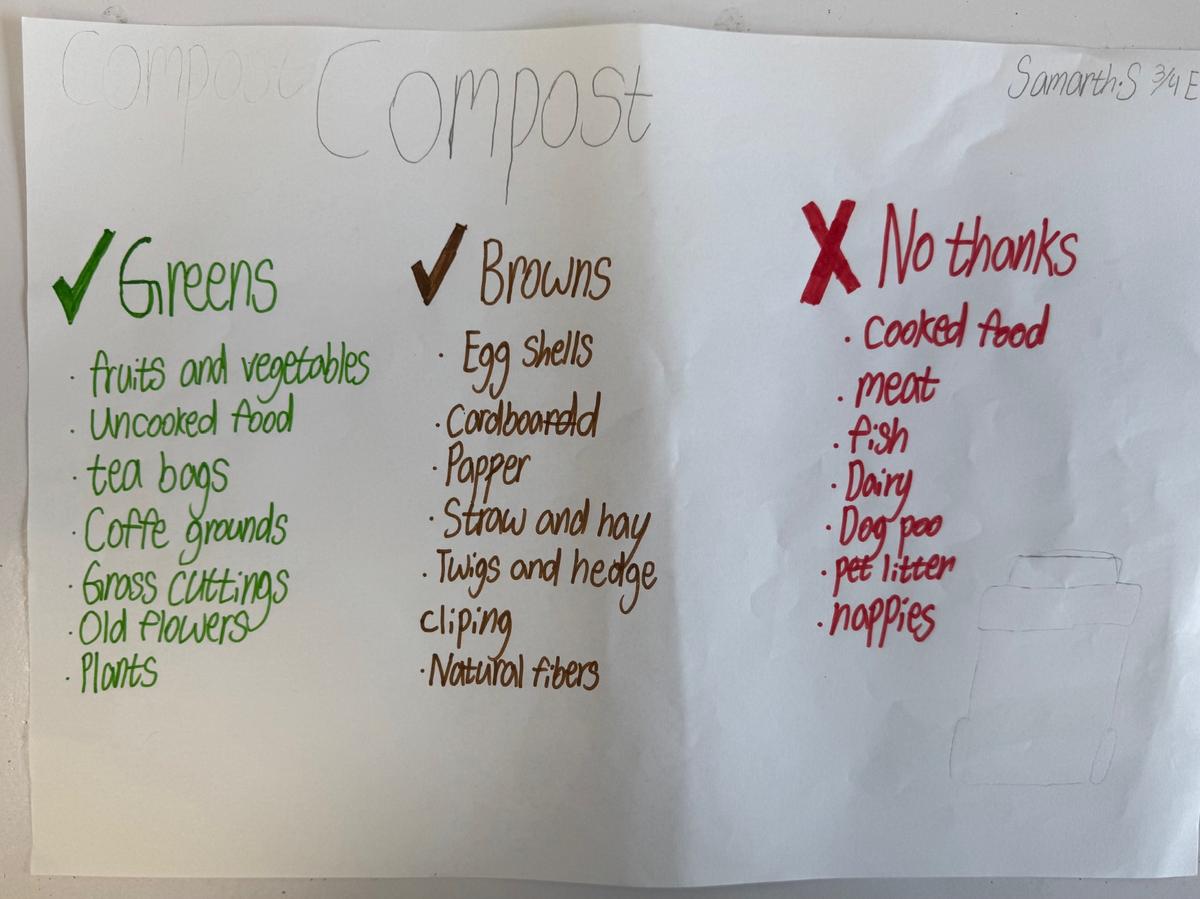 Compost
Compost
Samarth.S 3/4 E
✓ Greens
· fruits and vegetables
· Uncooked food
· tea bags
· Coffe grounds
· Grass cuttings
· Old flowers
· Plants
✓ Browns
· Egg shells
· Cardboardd
· Papper
· Straw and hay
· Twigs and hedge
cliping
· Natural fibers
X No thanks
· cooked food
· meat
· fish
· Dairy
· Dog poo
· pet litter
· nappies